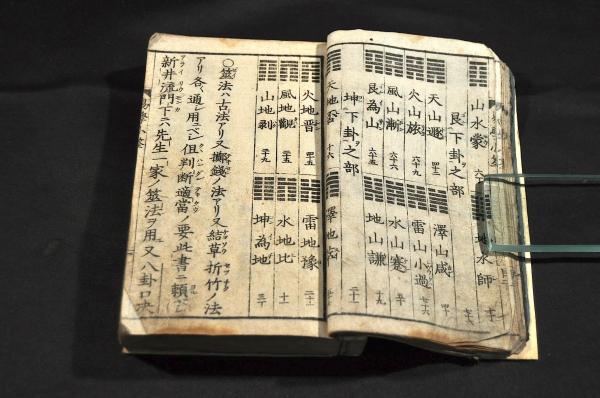 山水蒙
地水師
艮下卦之部
天山遯
澤山咸
火山旅 六十九
雷山小過 七十六
風山漸 六十六
水山蹇
艮為山 六十五
地山謙 十九
坤下卦之部
天地否 十六
澤地
火地晋
雷地豫 二十一
風地觀
水地比 十一
山地剥 二十九
坤為地
○筮法ハ古法アリ又擲錢ノ法アリ又結草折竹ノ法
アリ各通シ用ユベシ但判断適當ノ要此書ニ頼ベシ
新井流門下六先生一家ノ筮法ヲ用又八卦口决